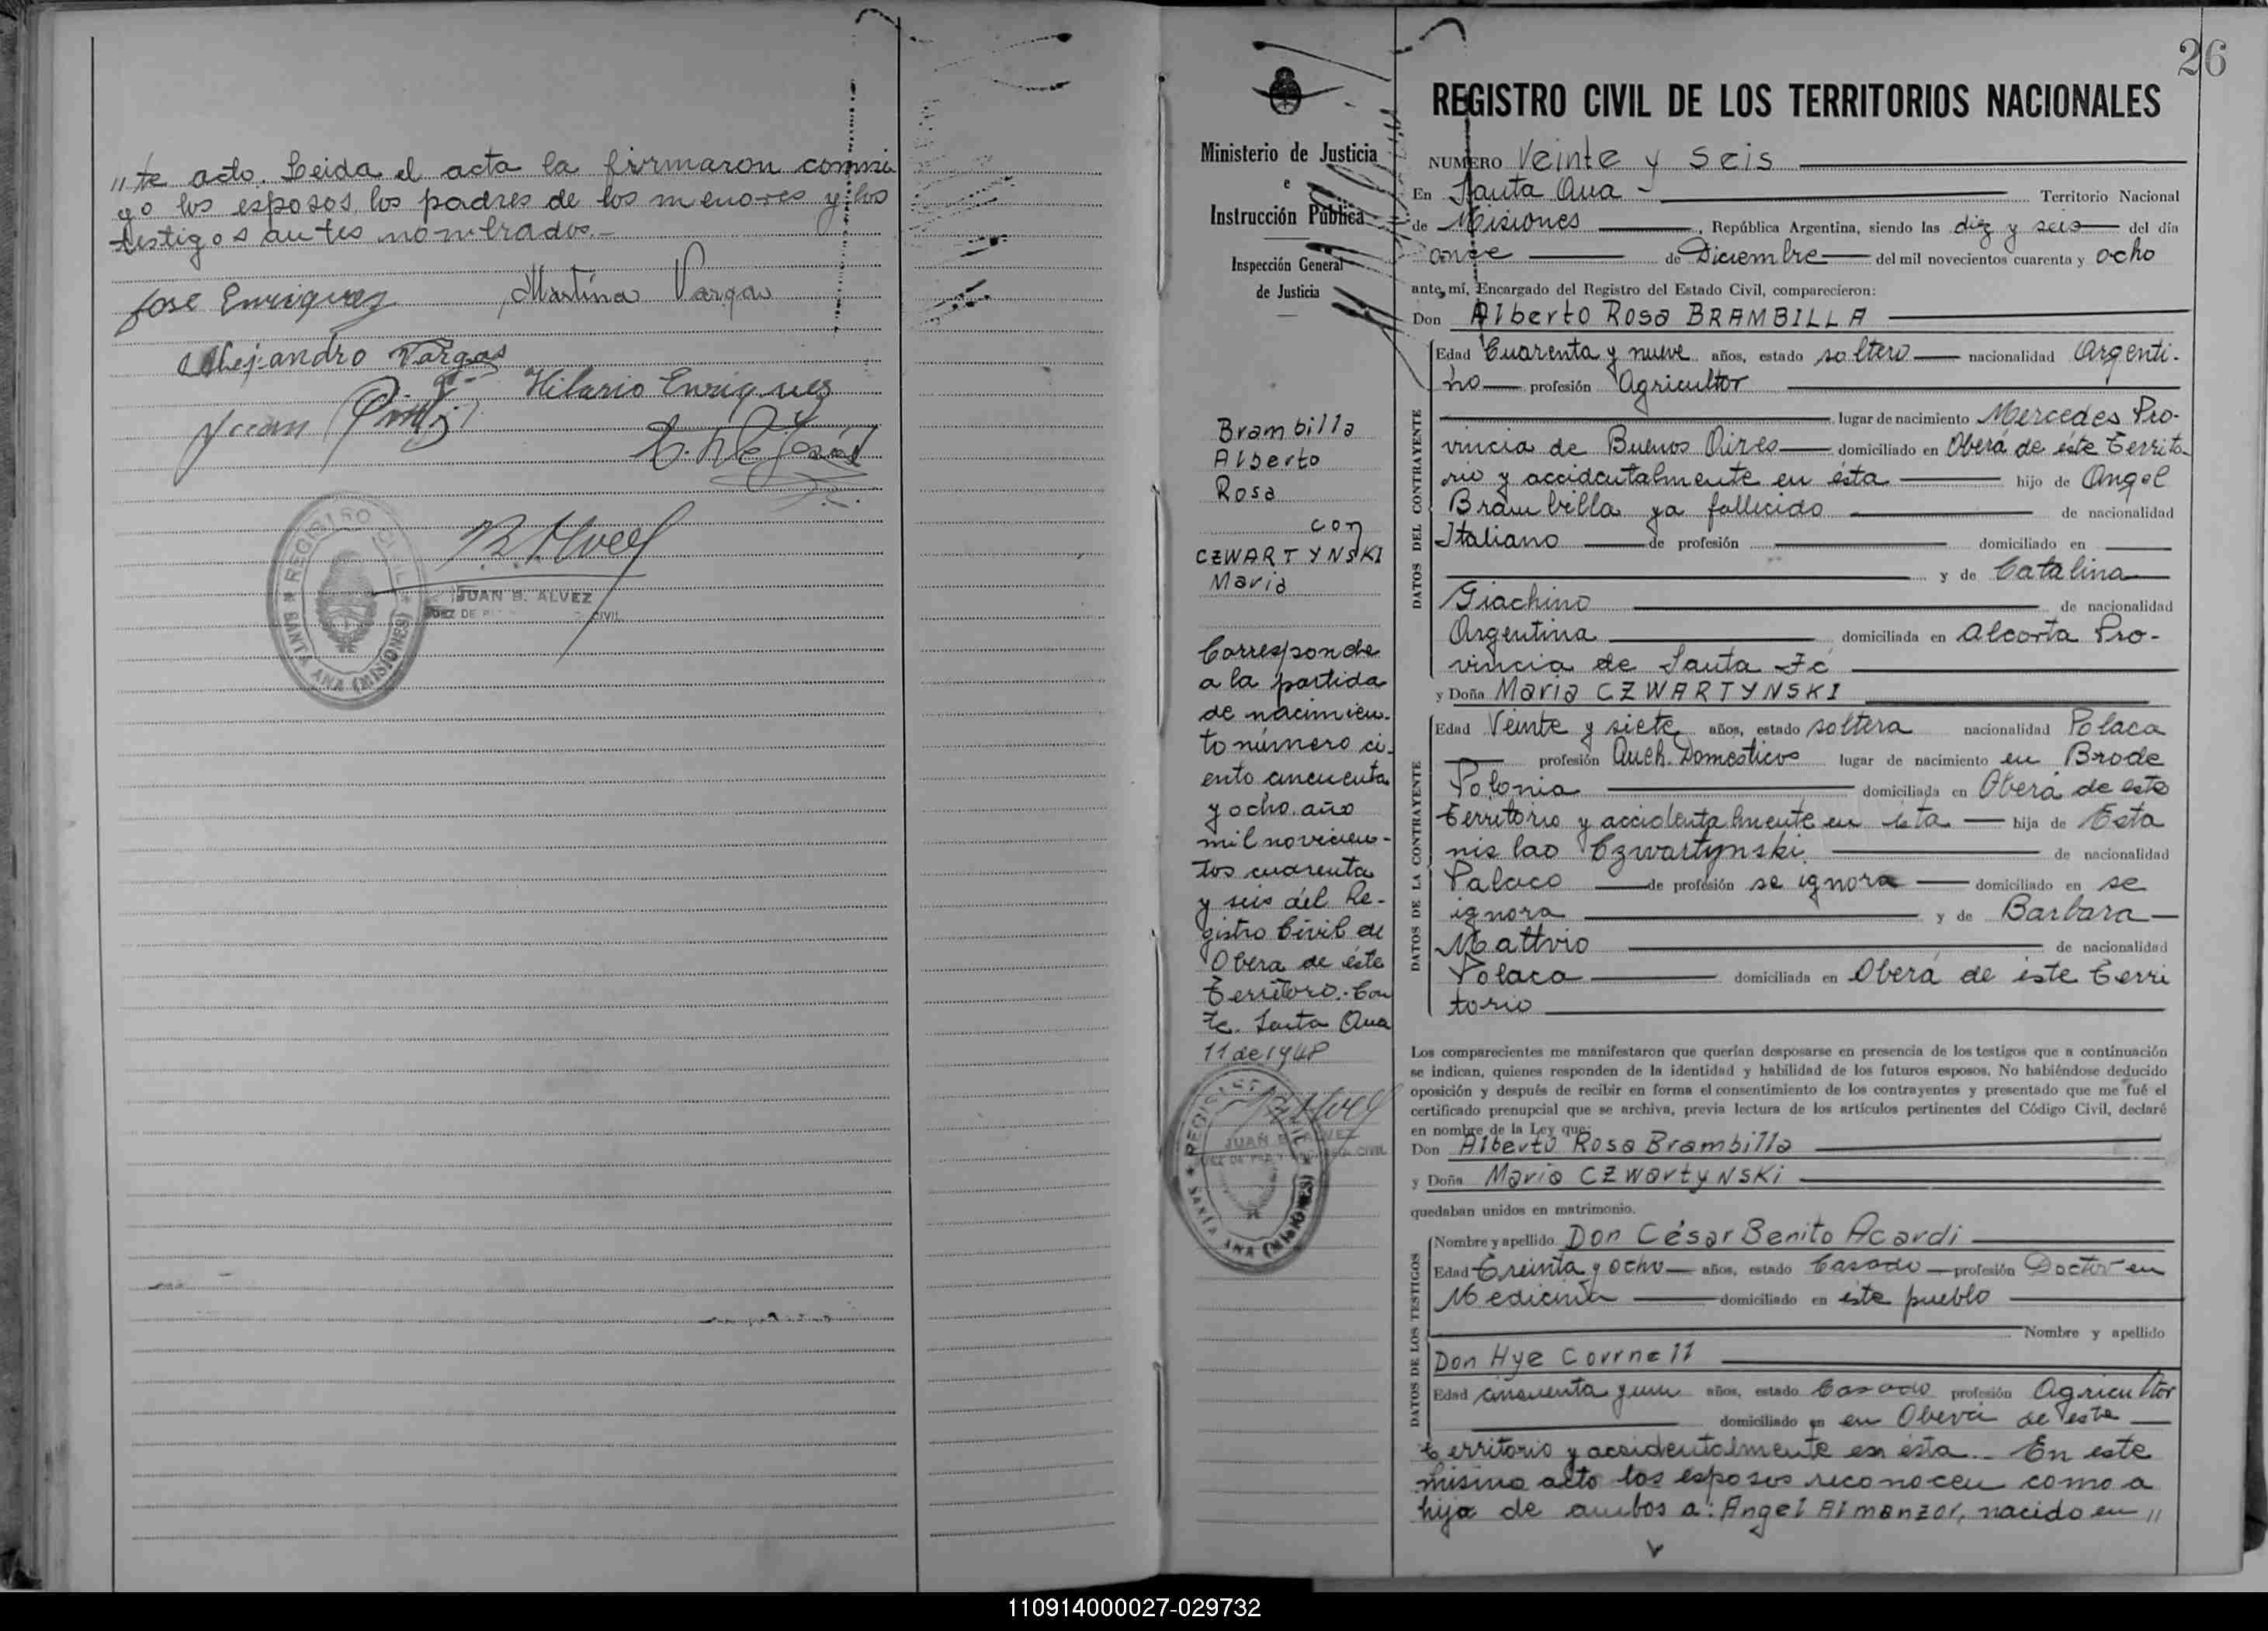 "te acto. Leida el acta la firmaron conmi
go los esposos, los padres de los menores y los
testigos antes nombrados.-
Jose Enriquez Martina Varga
Alejandro Vargas
Hilario Enriquez
Juan
REGISTRO CIVIL
SANTA ANA (MISIONES)
JUAN B. ALVEZ
JUEZ DE P CIVIL
26
Ministerio de Justicia
e
Instrucción Pública
Inspección General
de Justicia
Brambilla
Alberto
Rosa
con
CZWARTYNSKI
Maria
Corresponde
a la partida
de nacimien-
to número ci-
ento cincuenta
y ocho, año
mil novecien-
tos cuarenta
y seis del Re-
gistro Civil de
Obera de éste
Territoro.- Con
te. Santa Ana
11 de 1948
REGISTRO CIVIL
JUAN B. ALVEZ
JUEZ DE PAZ Y ENC. REG. CIVIL
SANTA ANA (MISIONES)
REGISTRO CIVIL DE LOS TERRITORIOS NACIONALES
NUMERO Veinte y Seis
En Santa Ana Territorio Nacional
de Misiones , República Argentina, siendo las diez y seis del día
once de Diciembre del mil novecientos cuarenta y ocho
ante mí, Encargado del Registro del Estado Civil, comparecieron:
Don Alberto Rosa BRAMBILLA
DATOS DEL CONTRAYENTE
Edad Cuarenta y nueve años, estado soltero nacionalidad Argenti-
no profesión Agricultor
lugar de nacimiento Mercedes Pro-
vincia de Buenos Aires domiciliado en Oberá de éste Territo-
rio y accidentalmente en ésta hijo de Angel
Brambilla ya fallecido de nacionalidad
Italiano de profesión domiciliado en
y de Catalina
Giachino de nacionalidad
Argentina domiciliada en Alcorta Pro-
vincia de Santa Fé
y Doña Maria CZWARTYNSKI
DATOS DE LA CONTRAYENTE
Edad Veinte y siete años, estado soltera nacionalidad Polaca
profesión Queh. Domesticos lugar de nacimiento en Brode
Polonia domiciliada en Oberá de este
Territorio y accidentalmente en ésta hija de Esta
nis lao Czwartynski de nacionalidad
Palaco de profesión se ignora domiciliado en se
ignora y de Barbara
Mattvio de nacionalidad
Polaca domiciliada en Oberá de éste Terri
torio
Los comparecientes me manifestaron que querían desposarse en presencia de los testigos que a continuación
se indican, quienes responden de la identidad y habilidad de los futuros esposos. No habiéndose deducido
oposición y después de recibir en forma el consentimiento de los contrayentes y presentado que me fué el
certificado prenupcial que se archiva, previa lectura de los artículos pertinentes del Código Civil, declaré
en nombre de la Ley que:
Don Alberto Rosa Brambilla
y Doña Maria CZWartyNSKi
quedaban unidos en matrimonio.
DATOS DE LOS TESTIGOS
Nombre y apellido Don César Benito Acardi
Edad Treinta y ocho años, estado Casado profesión Doctor en
Medicina domiciliado en éste pueblo
Nombre y apellido
Don Hye Courne11
Edad cincuenta y un años, estado Casado profesión Agricultor
domiciliado en en Oberá de este
territorio y accidentalmente en ésta.- En este
mismo acto los esposos reconocen como a
hijo de ambos a: Angel Almanzor, nacido en "
110914000027-029732